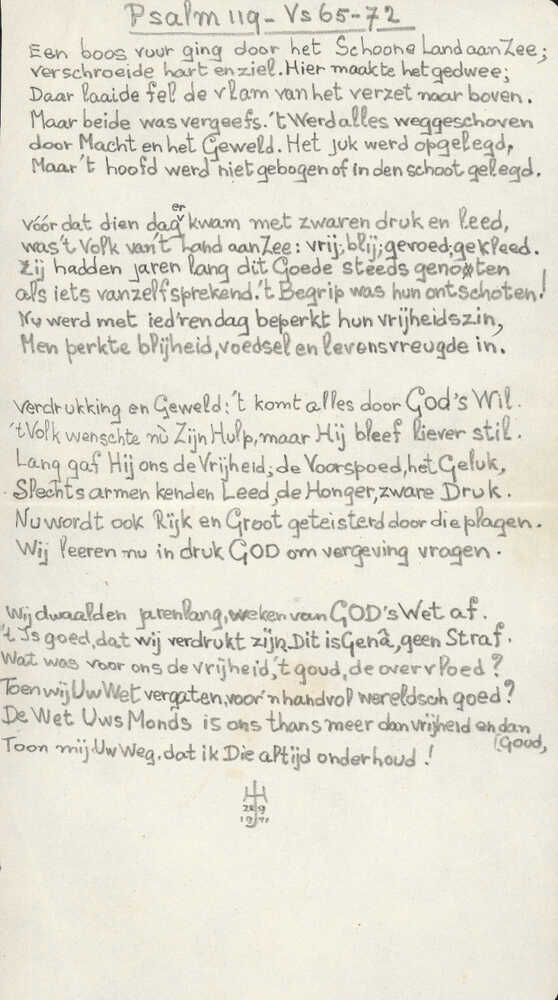 Psalm 119 - Vs 65-72
Een boos vuur ging door het Schoone Land aan Zee;
verschroeide hart en ziel. Hier maakte het gedwee;
Daar laaide fel de vlam van het verzet naar boven.
Maar beide was vergeefs. 't Werd alles weggeschoven
door Macht en het Geweld. Het juk werd opgelegd,
Maar 't hoofd werd niet gebogen of in den schoot gelegd.
vóór dat dien dag er kwam met zwaren druk en leed,
was 't Volk van 't Land aan Zee: vrij; blij; gevoed; gekleed.
Zij hadden jaren lang dit Goede steeds genoten
als iets vanzelfsprekend. 't Begrip was hun ontschoten!
Nu werd met ied'ren dag beperkt hun vrijheidszin,
Men perkte blijheid, voedsel en levensvreugde in.
Verdrukking en Geweld: 't komt alles door God's Wil.
't Volk wenschte nù Zijn Hulp, maar Hij bleef liever stil.
Lang gaf Hij ons de Vrijheid; de Voorspoed, het Geluk,
Slechts armen kenden Leed, de Honger, zware Druk.
Nu wordt ook Rijk en Groot geteisterd door die plagen.
Wij leeren nu in druk GOD om vergeving vragen.
Wij dwaalden jarenlang, weken van GOD's Wet af.
't Is goed, dat wij verdrukt zijn. Dit is Genâ, geen Straf.
Wat was voor ons de vrijheid, 't goud, de overvloed?
Toen wij Uw Wet vergaten, voor 'n handvol wereldsch goed?
De Wet Uws Monds is ons thans meer dan vrijheid en dan
(Goud,
Toon mij Uw Weg. dat ik Die altijd onderhoud!